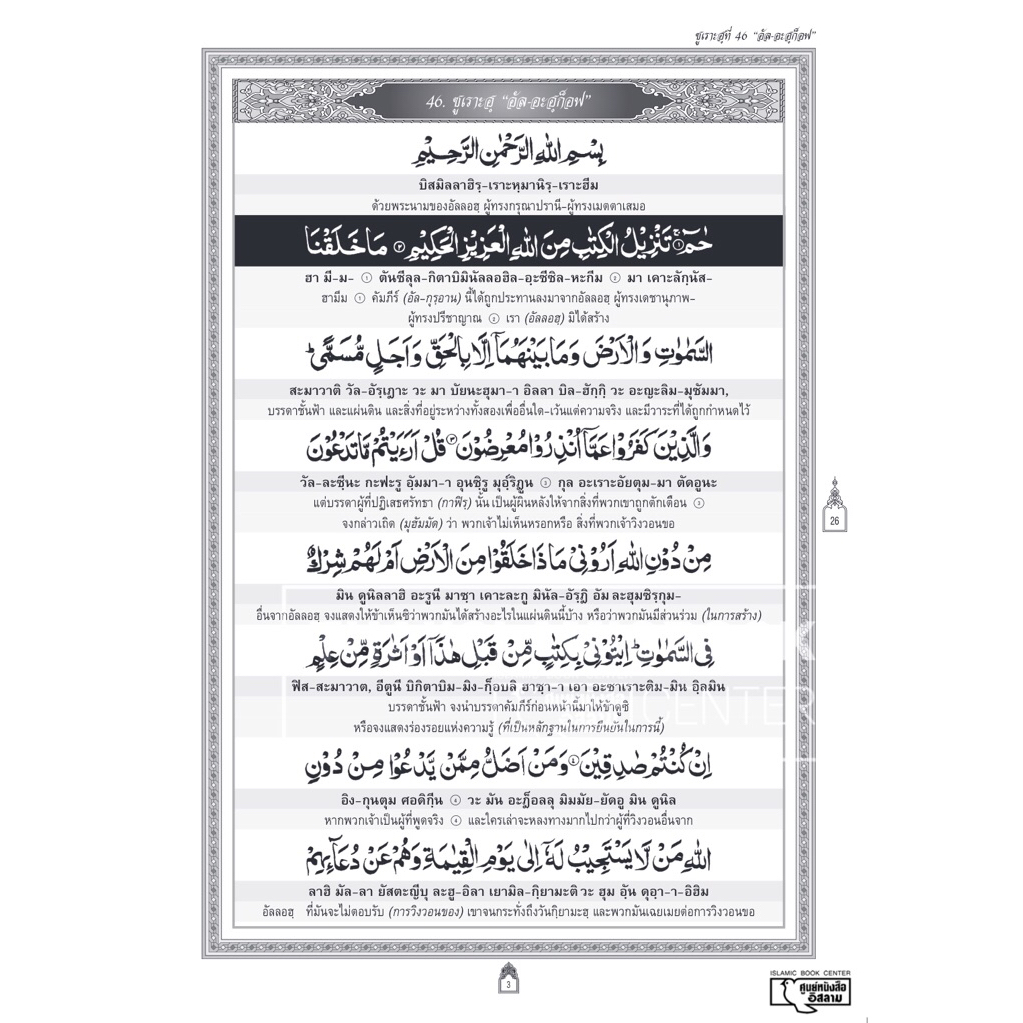 ซูเราะฮฺที่ 46 "อัล-อะฮฺก็อฟ"
46. ซูเราะฮฺ "อัล-อะฮฺก็อฟ"
بِسْمِ اللهِ الرَّحْمٰنِ الرَّحِيْمِ
บิสมิลลาฮิรฺ-เราะหฺมานิรฺ-เราะฮีม
ด้วยพระนามของอัลลอฮฺ ผู้ทรงกรุณาปรานี-ผู้ทรงเมตตาเสมอ
حٰمٓ ۚ ① تَنْزِيْلُ الْكِتٰبِ مِنَ اللهِ الْعَزِيْزِ الْحَكِيْمِ ② مَا خَلَقْنَا
ฮา มี-ม- ① ตันซีลุล-กิตาบิมินัลลอฮิล-อฺะซีซิล-หะกีม ② มา เคาะลักฺนัส-
ฮามีม ① คัมภีร์ (อัล-กุรฺอาน) นี้ได้ถูกประทานลงมาจากอัลลอฮฺ ผู้ทรงเดชานุภาพ-
ผู้ทรงปรีชาญาณ ② เรา (อัลลอฮฺ) มิได้สร้าง
السَّمٰوٰتِ وَالْاَرْضَ وَمَا بَيْنَهُمَآ اِلَّا بِالْحَقِّ وَاَجَلٍ مُّسَمًّىۗ
สะมาวาติ วัล-อัรฺเฎาะ วะ มา บัยนะฮุมา-า อิลลา บิล-ฮักฺกิ วะ อะญะลิม-มุซัมมา,
บรรดาชั้นฟ้า และแผ่นดิน และสิ่งที่อยู่ระหว่างทั้งสองเพื่ออื่นใด-เว้นแต่ความจริง และมีวาระที่ได้ถูกกำหนดไว้
وَالَّذِيْنَ كَفَرُوْا عَمَّآ اُنْذِرُوْا مُعْرِضُوْنَ ③ قُلْ اَرَءَيْتُمْ مَّا تَدْعُوْنَ
วัล-ละซีฺนะ กะฟะรู อัฺมมา-า อุนซิฺรู มุอฺริฎูน ③ กุล อะเราะอัยตุม-มา ตัดอูนะ
แต่บรรดาผู้ที่ปฏิเสธศรัทธา (กาฟิรฺ) นั้น เป็นผู้ผินหลังให้จากสิ่งที่พวกเขาถูกตักเตือน ③
จงกล่าวเถิด (มุฮัมมัด) ว่า พวกเจ้าไม่เห็นหรอกหรือ สิ่งที่พวกเจ้าวิงวอนขอ
مِنْ دُوْنِ اللهِ اَرُوْنِيْ مَاذَا خَلَقُوْا مِنَ الْاَرْضِ اَمْ لَهُمْ شِرْكٌ
มิน ดูนิลลาฮิ อะรูนี มาซฺา เคาะละกู มินัล-อัรฺฎิ อัม ละฮุมชิรฺกุม-
อื่นจากอัลลอฮฺ จงแสดงให้ข้าเห็นซิว่าพวกมันได้สร้างอะไรในแผ่นดินนี้บ้าง หรือว่าพวกมันมีส่วนร่วม (ในการสร้าง)
فِى السَّمٰوٰتِۗ اِيْتُوْنِيْ بِكِتٰبٍ مِّنْ قَبْلِ هٰذَآ اَوْ اَثٰرَةٍ مِّنْ عِلْمٍ
ฟิส-สะมาวาต, อีตูนี บิกิตาบิม-มิง-ก็อบลิ ฮาซฺา-า เอา อะซาเราะติม-มิน อิฺลมิน
บรรดาชั้นฟ้า จงนำบรรดาคัมภีร์ก่อนหน้านี้มาให้ข้าดูซิ
หรือจงแสดงร่องรอยแห่งความรู้ (ที่เป็นหลักฐานในการยืนยันในการนี้)
اِنْ كُنْتُمْ صٰدِقِيْنَ ④ وَمَنْ اَضَلُّ مِمَّنْ يَّدْعُوْا مِنْ دُوْنِ
อิง-กุนตุม ศอดิกีฺน ④ วะ มัน อะฎ็อลลุ มิมมัย-ยัดอู มิน ดูนิล
หากพวกเจ้าเป็นผู้ที่พูดจริง ④ และใครเล่าจะหลงทางมากไปกว่าผู้ที่วิงวอนอื่นจาก
اللهِ مَنْ لَّا يَسْتَجِيْبُ لَهٗٓ اِلٰى يَوْمِ الْقِيٰمَةِ وَهُمْ عَنْ دُعَآئِهِمْ
ลาฮิ มัล-ลา ยัสตะญีบุ ละฮู-อิลา เยามิล-กิยามะติ วะ ฮุม อัฺน ดุอฺา-า-อิฮิม
อัลลอฮฺ ที่มันจะไม่ตอบรับ (การวิงวอนของ) เขาจนกระทั่งถึงวันกิยามะฮฺ และพวกมันเฉยเมยต่อการวิงวอนขอ
26
3
ISLAMIC BOOK CENTER
ศูนย์หนังสือ
อิสลาม